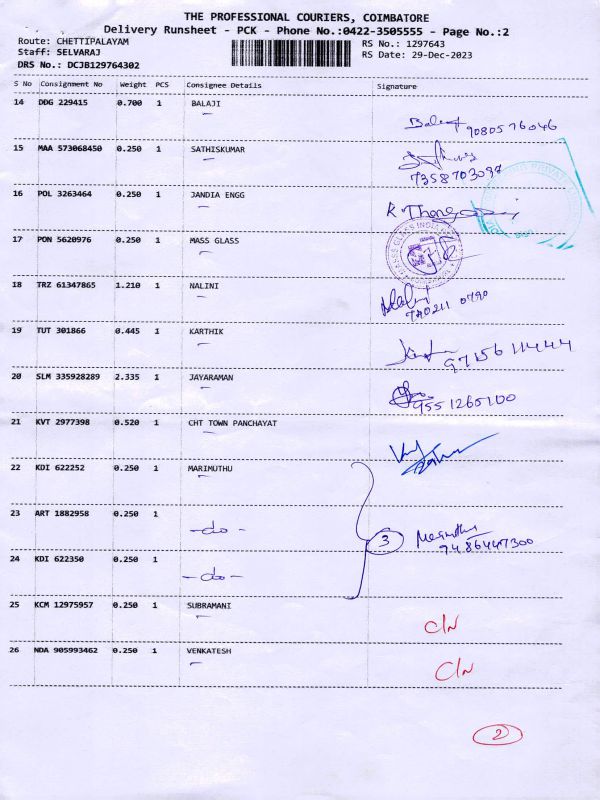 THE PROFESSIONAL COURIERS, COIMBATORE
Delivery Runsheet - PCK - Phone No.:0422-3505555 - Page No.:2
Route: CHETTIPALAYAM
RS No.: 1297643
Staff: SELVARAJ
RS Date: 29-Dec-2023
DRS No.: DCJB129764302
S No Consignment No Weight PCS Consignee Details Signature
14 DDG 229415 0.700 1 BALAJI
9080576046
15 MAA 573068450 0.250 1 SATHISKUMAR
16 POL 3263464 0.250 1 JANDIA ENGG
17 PON 5620976 0.250 1 MASS GLASS
18 TRZ 61347865 1.210 1 NALINI
19 TUT 301866 0.445 1 KARTHIK
9715611444
20 SLM 335928289 2.335 1 JAYARAMAN
9551265100
21 KVT 2977398 0.520 1 CHT TOWN PANCHAYAT
22 KDI 622252 0.250 1 MARIMUTHU
23 ART 1882958 0.250 1 -do-
3 Marimuthu
24 KDI 622350 0.250 1 -do-
25 KCM 12975957 0.250 1 SUBRAMANI
C/N
26 NDA 905993462 0.250 1 VENKATESH
C/N
2